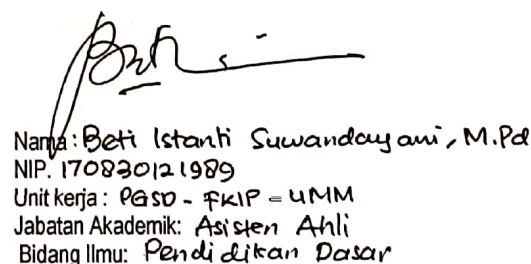 Nama : Beti Istanti Suwandayani, M.Pd
NIP. 170830121989
Unit kerja : PGSD - FKIP - UMM
Jabatan Akademik: Asisten Ahli
Bidang Ilmu: Pendidikan Dasar